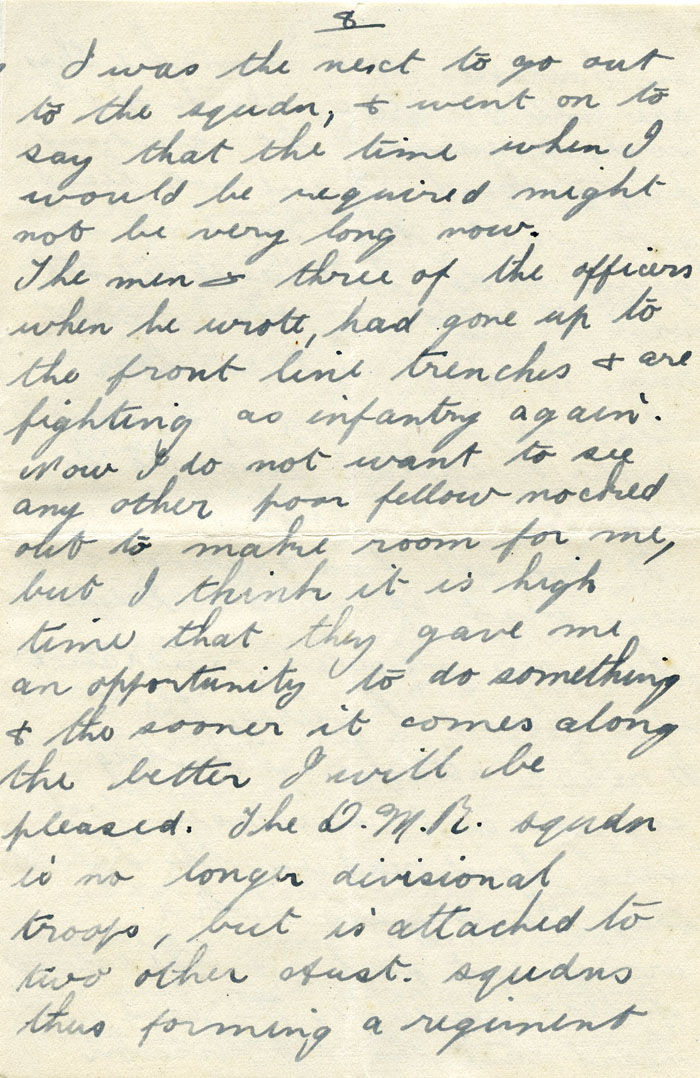 8
I was the next to go out
to the squdn, & went on to
say that the time when I
would be required might
not be very long now.
The men & three of the officers
when he wrote, had gone up to
the front line trenches & are
fighting as infantry again.
Now I do not want to see
any other poor fellow nocked
out to make room for me,
but I think it is high
time that they gave me
an opportunity to do something
& the sooner it comes along
the better I will be
pleased. The D.M.R. squdn
is no longer divisional
troops, but is attached to
two other Aust. squdns
thus forming a regiment